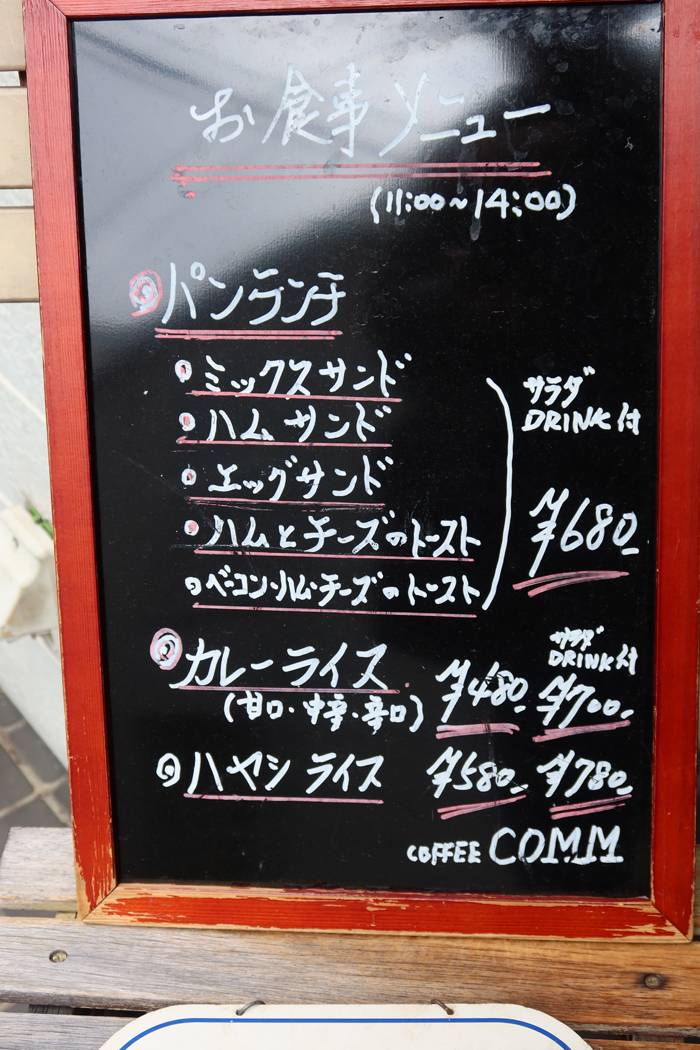 お食事メニュー
(11:00～14:00)
◎パンランチ
・ミックスサンド
・ハムサンド
・エッグサンド
・ハムとチーズのトースト
・ベーコン・ハム・チーズのトースト
サラダ
DRINK付
¥680-
◎カレーライス
(甘口・中辛・辛口)
¥480-
サラダ
DRINK付
¥700-
◎ハヤシライス ¥580- ¥780-
COFFEE COMM